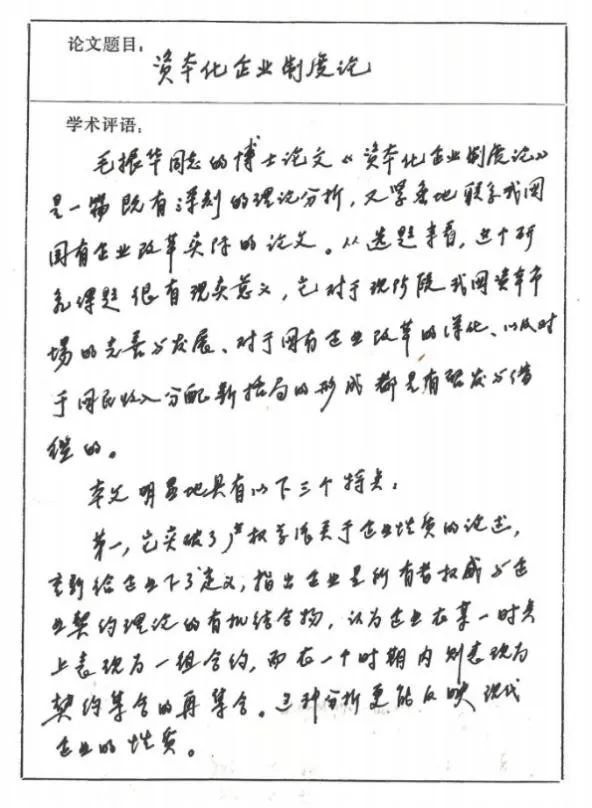 论文题目：
资本化企业制度论
学术评语：
毛振华同志的博士论文《资本化企业制度论》
是一篇既有深刻的理论分析，又紧密地联系我国
国有企业改革实际的论文。从选题来看，这个研
究课题很有现实意义，它对于现阶段我国资本市
场的完善与发展、对于国有企业改革的深化、以及对
于国民收入分配新格局的形成都是有启发与借
鉴的。
本文明显地具有以下三个特点：
第一，它突破了产权学派关于企业性质的论述，
重新给企业下了定义，指出企业是所有者权威与企
业契约理论的有机结合物，认为企业在某一时点
上表现为一组合约，而在一个时期内则表现为
契约集合的再集合。这种分析更能反映现代
企业的性质。